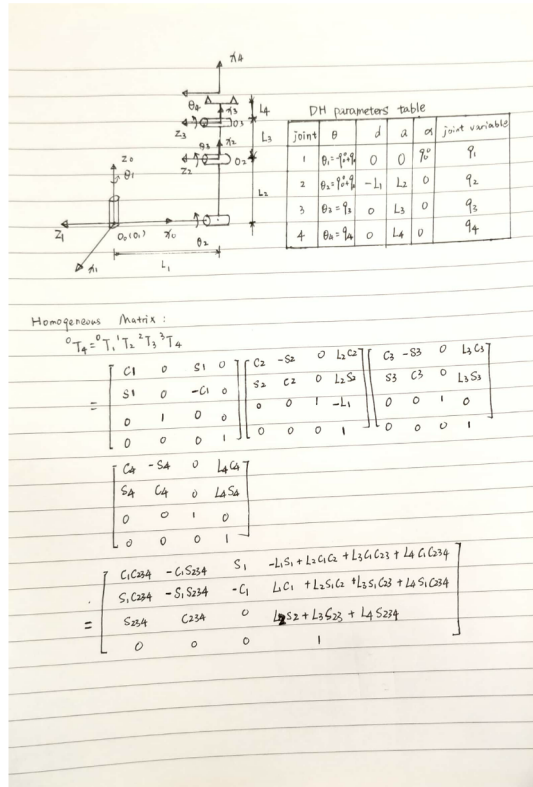 x4
θ4
x3
L4
z3
O3
L3
θ3
x2
z2
O2
z0
θ1
L2
z1
O0(O1)
x0
θ2
x1
L1
DH parameters table
joint θ d a α joint variable
1 θ1=90°+q1 0 0 90° q1
2 θ2=90°+q2 -L1 L2 0 q2
3 θ3=q3 0 L3 0 q3
4 θ4=q4 0 L4 0 q4
Homogeneous Matrix :
⁰T4=⁰T1 ¹T2 ²T3 ³T4
= [ C1 0 S1 0 ] [ C2 -S2 0 L2C2 ] [ C3 -S3 0 L3C3 ]
S1 0 -C1 0 S2 C2 0 L2S2 S3 C3 0 L3S3
0 1 0 0 0 0 1 -L1 0 0 1 0
0 0 0 1 0 0 0 1 0 0 0 1
C4 -S4 0 L4C4
S4 C4 0 L4S4
0 0 1 0
0 0 0 1
= [ C1C234 -C1S234 S1 -L1S1+L2C1C2+L3C1C23+L4C1C234 ]
S1C234 -S1S234 -C1 L1C1+L2S1C2+L3S1C23+L4S1C234
S234 C234 0 L2S2+L3S23+L4S234
0 0 0 1